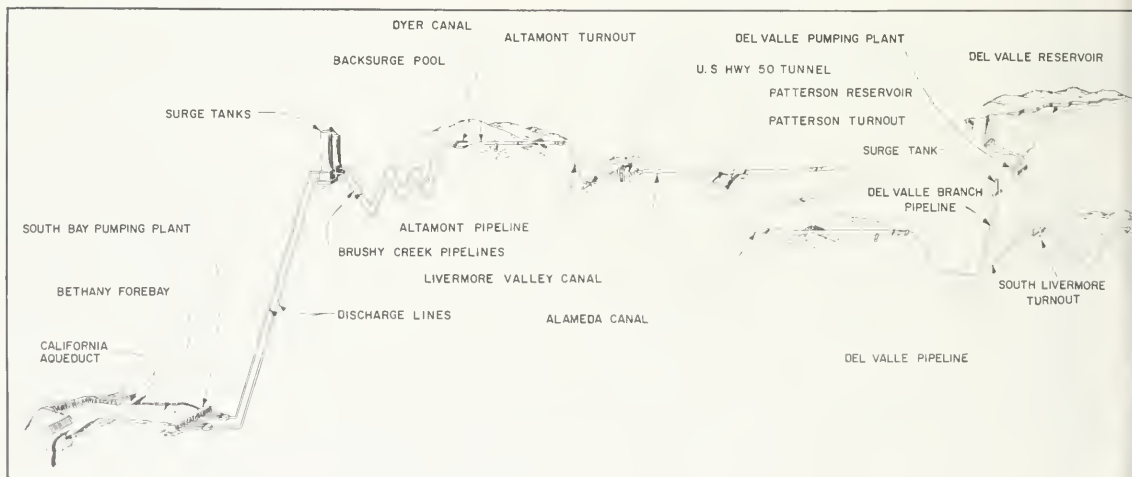 DYER CANAL
ALTAMONT TURNOUT
DEL VALLE PUMPING PLANT
DEL VALLE RESERVOIR
BACKSURGE POOL
U.S HWY 50 TUNNEL
PATTERSON RESERVOIR
SURGE TANKS
PATTERSON TURNOUT
SURGE TANK
DEL VALLE BRANCH
PIPELINE
SOUTH BAY PUMPING PLANT
ALTAMONT PIPELINE
BRUSHY CREEK PIPELINES
LIVERMORE VALLEY CANAL
SOUTH LIVERMORE
TURNOUT
BETHANY FOREBAY
DISCHARGE LINES
ALAMEDA CANAL
CALIFORNIA
AQUEDUCT
DEL VALLE PIPELINE